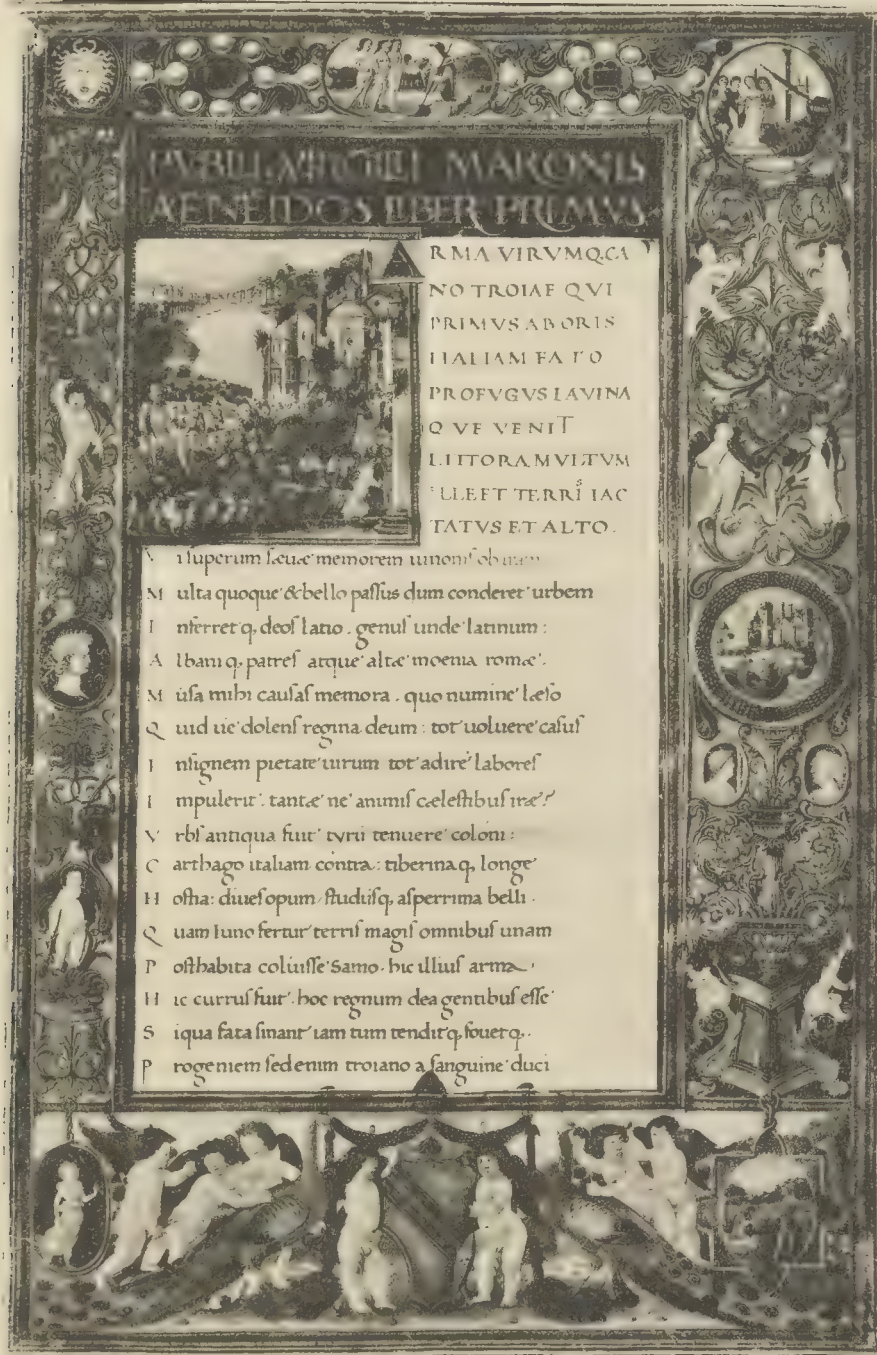 PVBLII VIRGILII MARONIS
AENEIDOS LIBER PRIMVS
A RMA VIRVMQ, CA
NO TROIAE QVI
PRIMVS AB ORIS
ITALIAM FATO
PROFVGVS LAVINA
QVE VENIT
LITTORA MVLTVM
ILLE ET TERRIS IAC
TATVS ET ALTO.
V i superum sæuæ memorem iunonis ob iram
M ulta quoque & bello passus dum conderet urbem
I nferret q, deos latio. genus unde latinum:
A lbani q, patres atque altæ moenia romæ.
M usa mihi causas memora. quo numine læso
Q uid ue dolens regina deum: tot uoluere casus
I nsignem pietate uirum tot adire labores
I mpulerit. tantæ ne animis cælestibus iræ?
V rbs antiqua fuit tyrii tenuere coloni:
C arthago italiam contra: tiberina q, longe
H ostia: diues opum studiisq, asperrima belli.
Q uam Iuno fertur terris magis omnibus unam
P osthabita coluisse Samo. hic illius arma.
H ic currus fuit. hoc regnum dea gentibus esse
S iqua fata sinant iam tum tendit q, fouet q.
P rogeniem sed enim troiano a sanguine duci